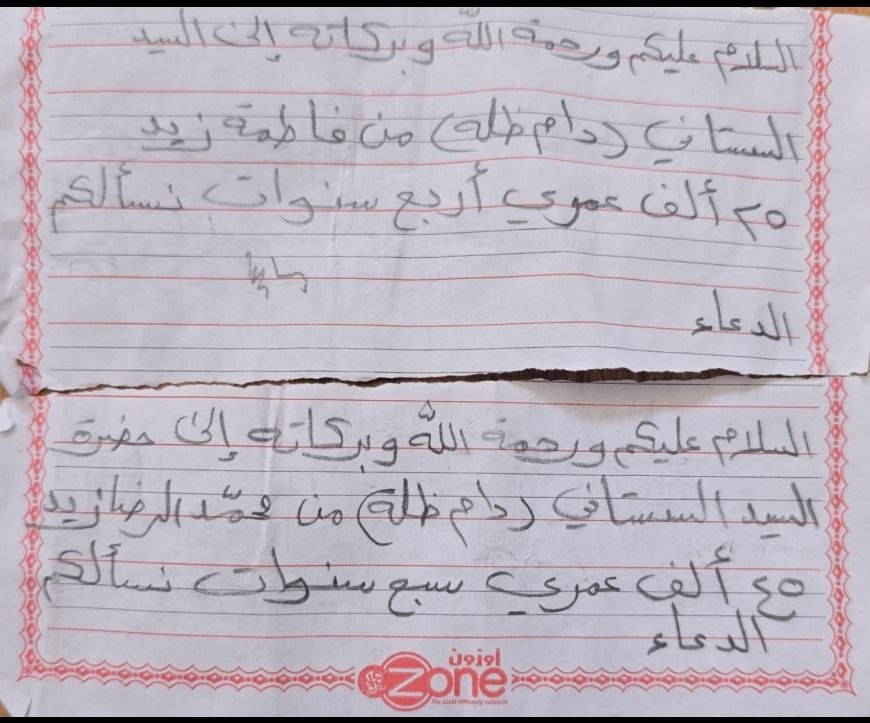 السلام عليكم ورحمة الله وبركاته إلى السيد
السستاني (دام ظله) من فاطمة زيد
٢٥ ألف عمري أربع سنوات نسألكم
الدعاء
السلام عليكم ورحمة الله وبركاته إلى حضرة
السيد السستاني (دام ظله) من محمّد الرضا زيد
٤٥ ألف عمري سبع سنوات نسألكم
الدعاء
اوزون
Ozone